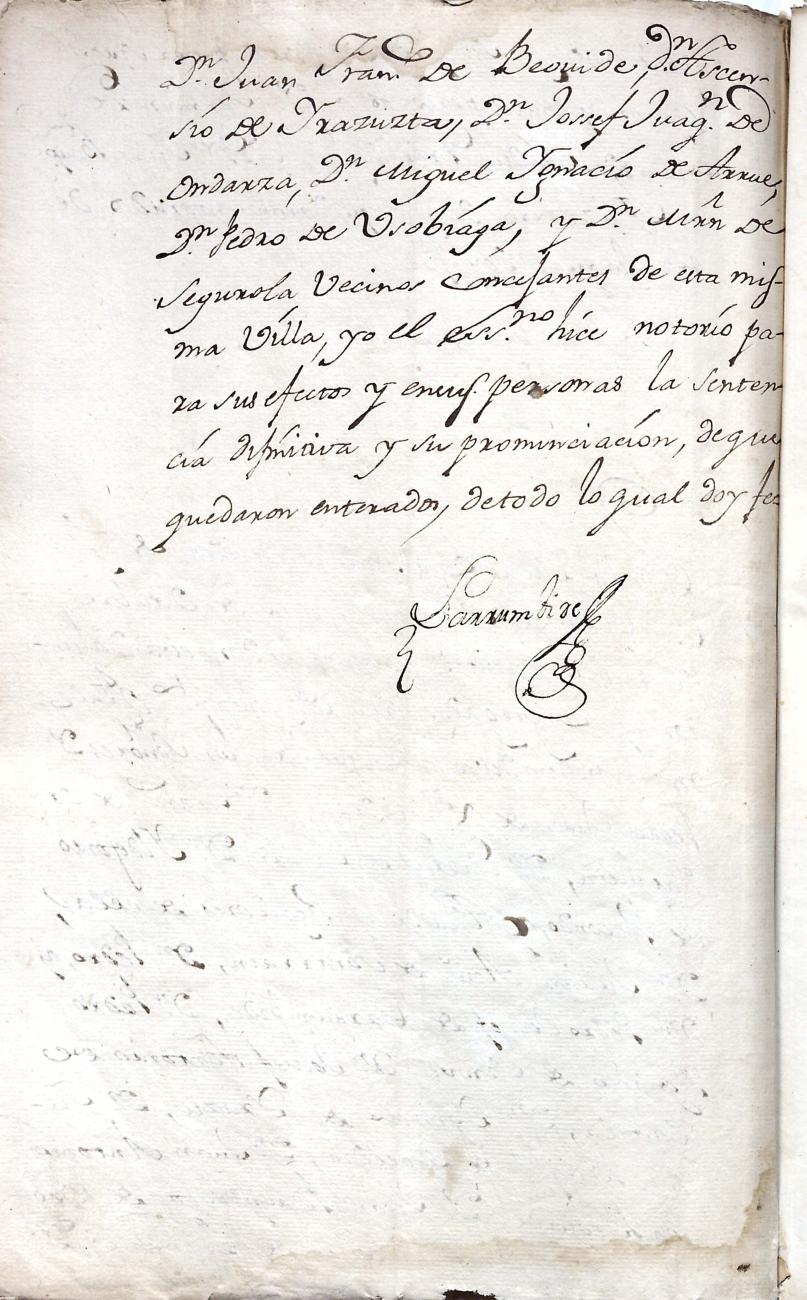 Dn Juan Franco de Beovide, Dn Ascen-
sio de Yrazuzta, Dn Jossef Juaqn de
Ondarza, Dn Miguel Ygnacio de Arrue,
Dn Pedro de Usobiaga, y Dn Mrn de
Segurola Vecinos Concejantes de esta mis-
ma Villa, yo el essno hice notorio pa-
ra sus efectos y en sus personas la senten-
cia difinitiva y su pronunciación, de que
quedaron enterados, de todo lo qual doy fee
Larrumbide